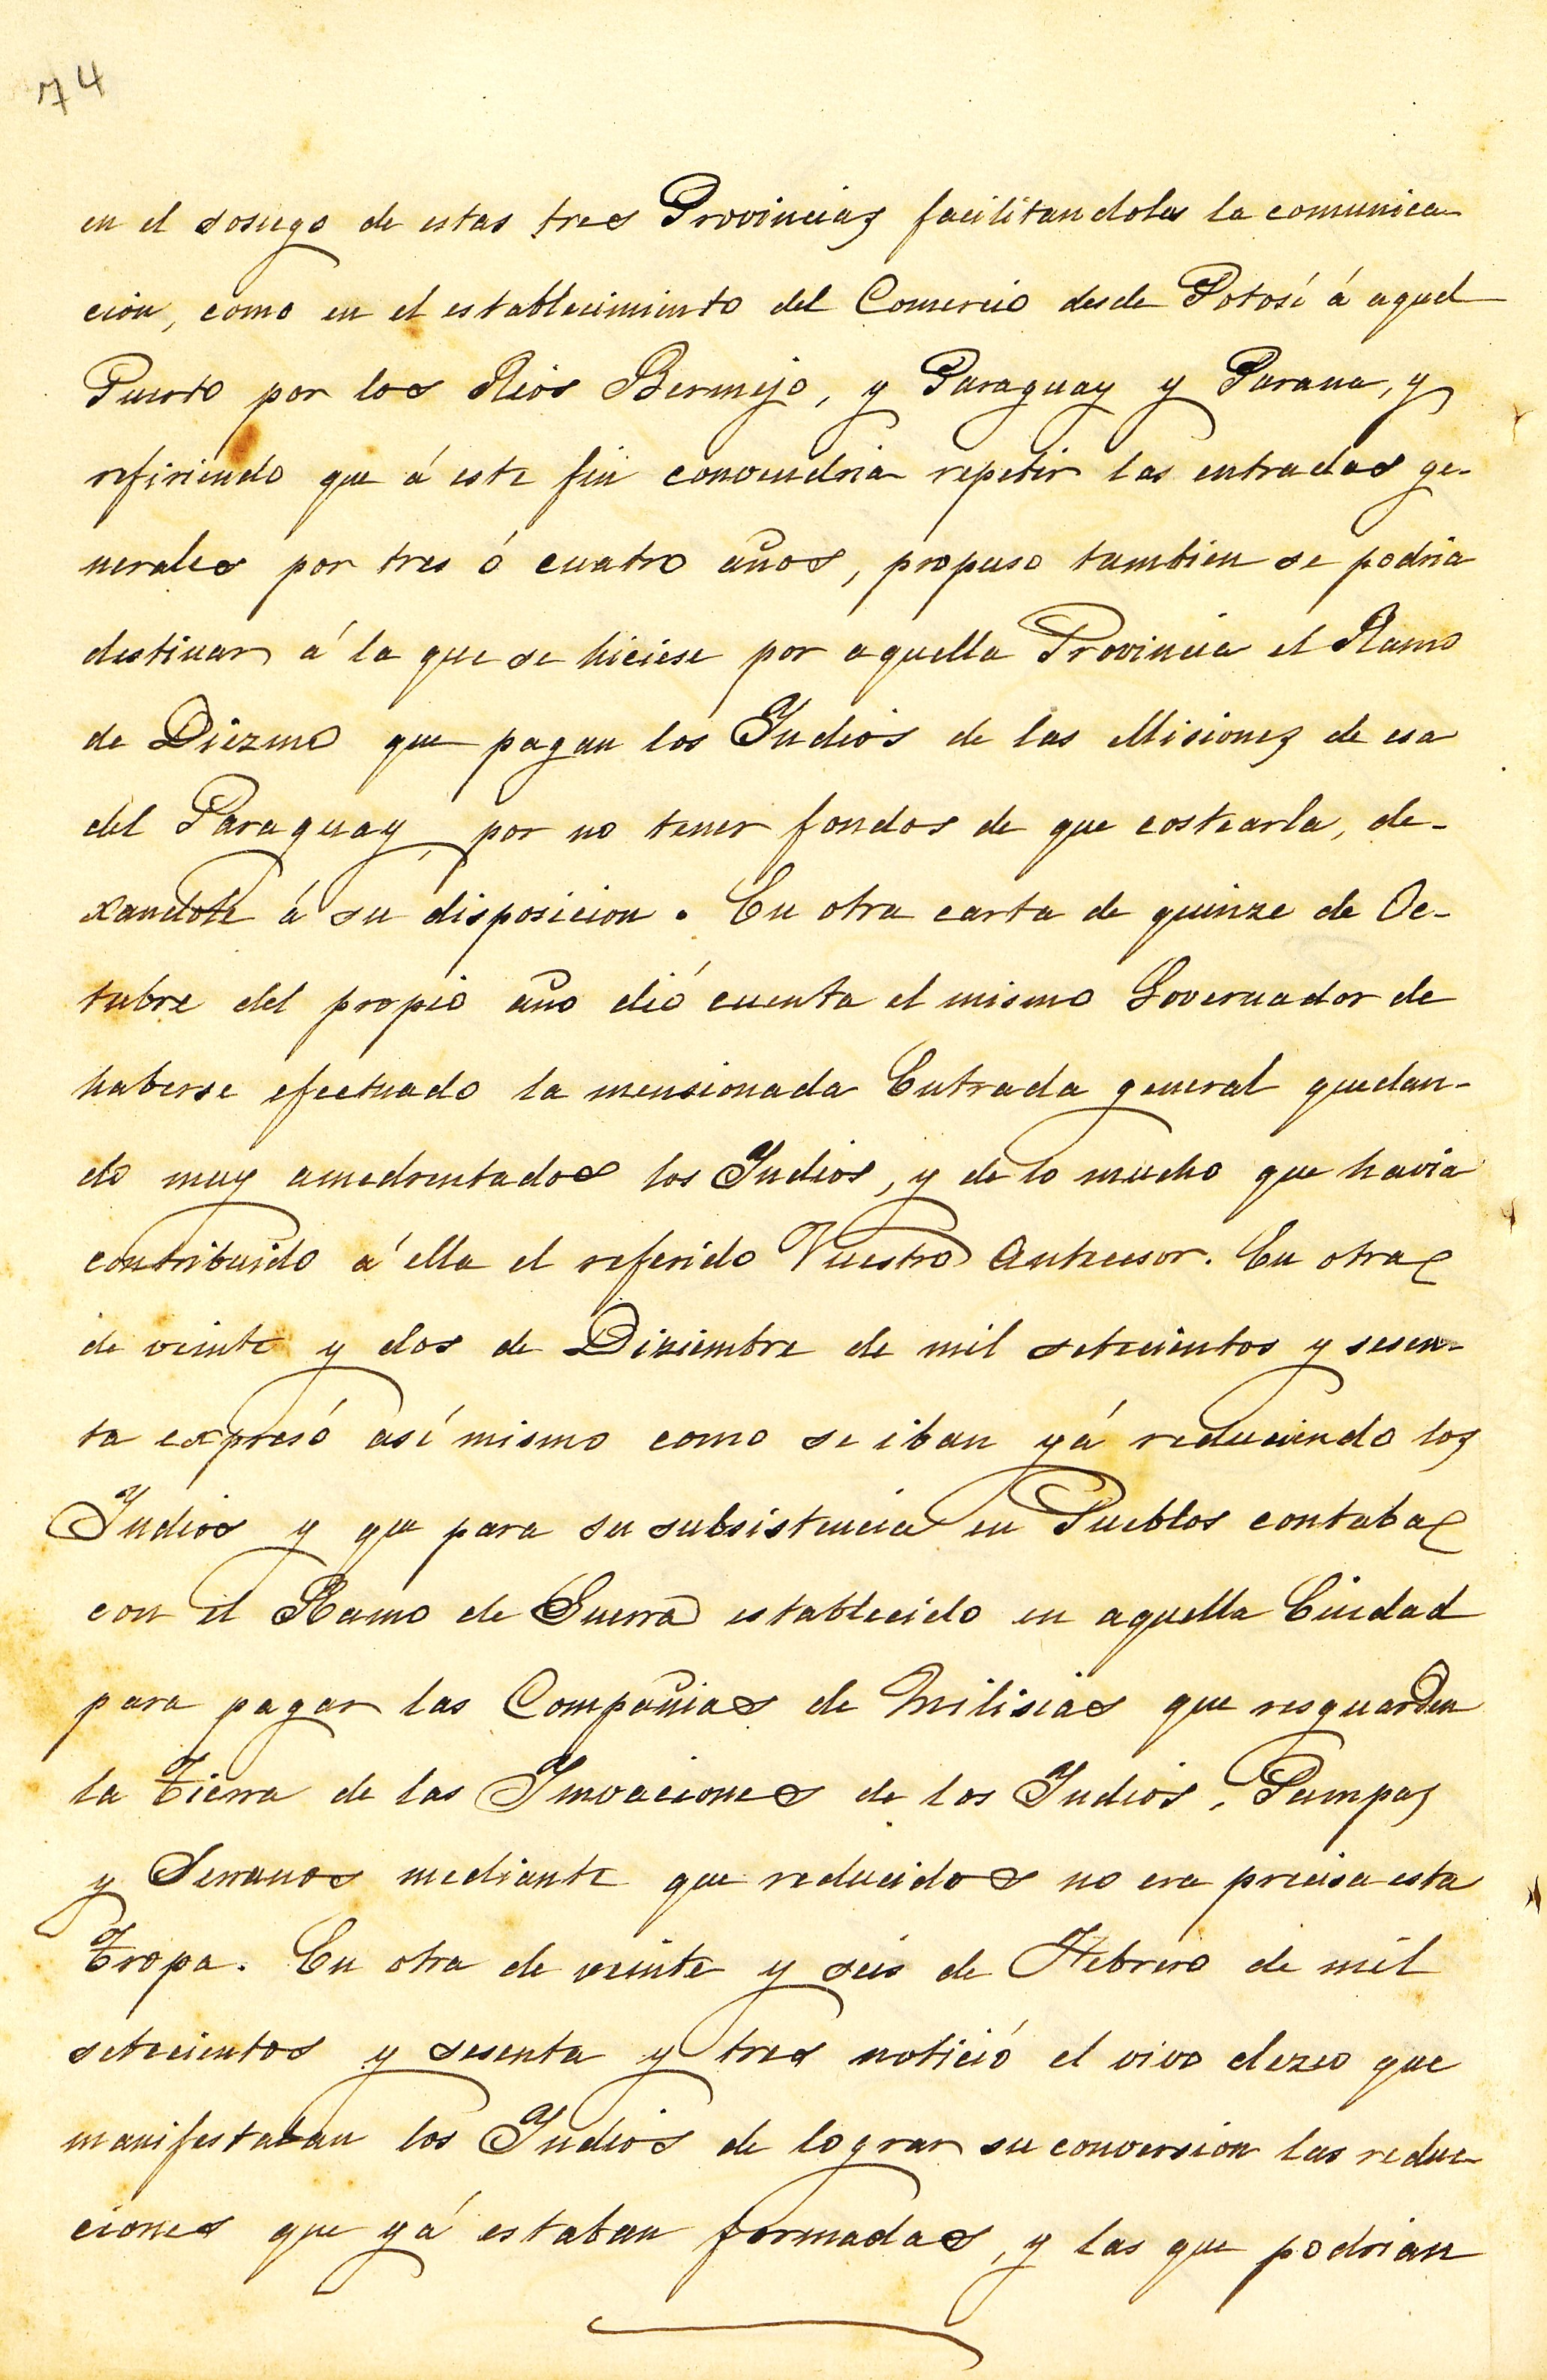 74
en el sosiego de estas tres Provincias facilitandoles la comunica-
cion, como en el establecimiento del Comercio desde Potosí á aquel
Puerto por los Rios Bermejo, y Paraguay y Parana, y
refiriendo que á este fin convendria repetir las entradas ge-
nerales por tres ó cuatro años, propuso tambien se podria
destinar á la que se hiciese por aquella Provincia el Ramo
de Diezmo que pagan los Yndios de las Misiones de esa
del Paraguay, por no tener fondos de que costearla, de-
xandole á su disposicion. En otra carta de quinze de Oc-
tubre del propio año dió cuenta el mismo Governador de
haberse efectuado la mensionada Entrada general quedan-
do muy amedrentados los Yndios, y de lo mucho que havia
contribuido á ella el referido Vuestro Antecesor. En otra
de veinte y dos de Diziembre de mil setecientos y sesen-
ta expresó así mismo como se iban yá reduciendo los
Yndios y que para su subsistencia en Pueblos contaba
con el Ramo de Guerra establecido en aquella Ciudad
para pagar las Compañias de Milisias que resguarden
la Tierra de las Ynvaciones de los Yndios, Pampas
y Serranos mediante que reducidos no era precisa esta
Tropa. En otra de veinte y seis de Febrero de mil
setecientos y sesenta y tres notició el vivo dezeo que
manifestaban los Yndios de lograr su conversion las reduc-
ciones que yá estaban formadas, y las que podrian